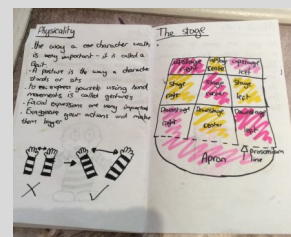 Physicality
. the way a car character walks
is very important - it is called a
Gait.
. A posture is the way a character
stands or sits
. to express yourself using hand
movements is called gestures
. Facial expressions are very important
. Exaggerate your actions and make
them bigger
The stage
Upstage
right
Upstage
center
Upstage
left
Stage
right
center
Stage
left
Downstage
right
Downstage
center
Downstage
left
Apron
proscenium
line